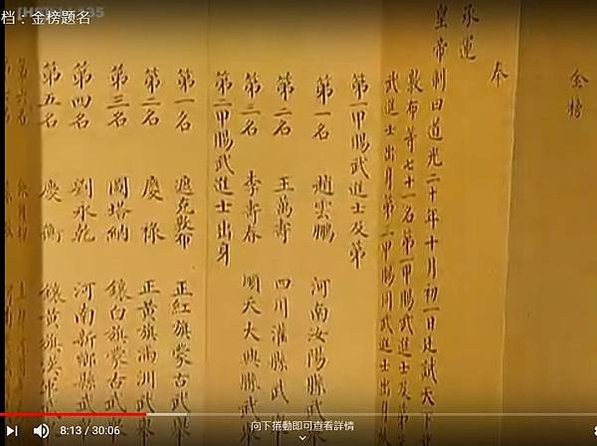 档：金榜题名
金榜
奉
承運
皇帝制曰道光二十年十月初一日廷試天下
敦布等七十一名第一甲賜武進士及第
武進士出身第三甲賜同武進士出身
第一甲賜武進士及第
第一名 趙雲鵬 河南汝陽縣武
第二名 王萬壽 四川灌縣武舉
第三名 李壽春 順天大興縣武
第二甲賜武進士出身
第一名 遮克敦布 正紅旗蒙古武舉
第二名 慶祿 正黃旗滿洲武舉
第三名 闊塔納 鑲白旗蒙古武
第四名 劉永乾 河南新鄉縣武
第五名 慶衡 鑲黃旗漢軍武
8:13 / 30:06
向下捲動即可查看詳情